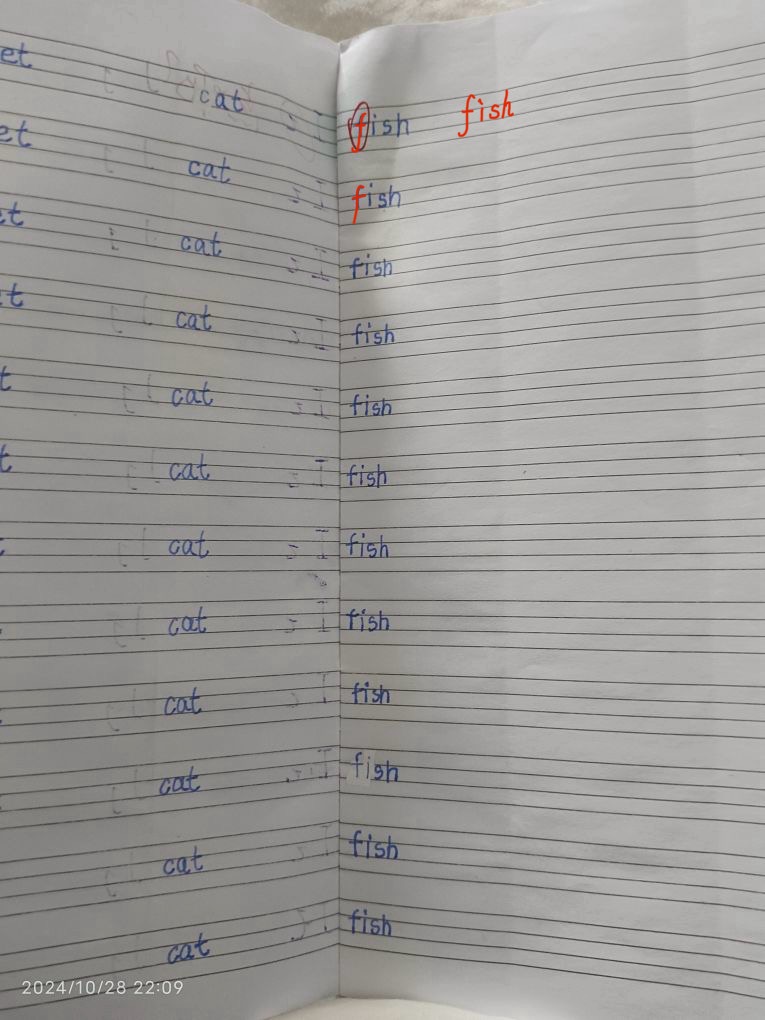 cat
cat
cat
cat
cat
cat
cat
cat
cat
cat
cat
cat
fish fish
fish
fish
fish
fish
fish
fish
fish
fish
fish
fish
fish
2024/10/28 22:09